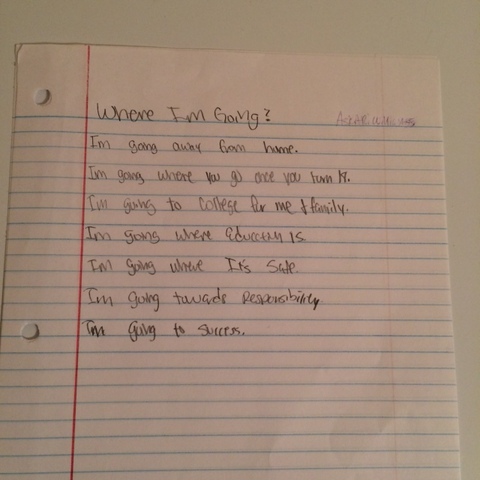 Where I'm Going?
I'm going away from home.
I'm going where you go once you turn 18.
I'm going to College for me & family.
I'm going where Education is
I'm going where It's Safe.
I'm going towards Responsibility
I'm going to Success.